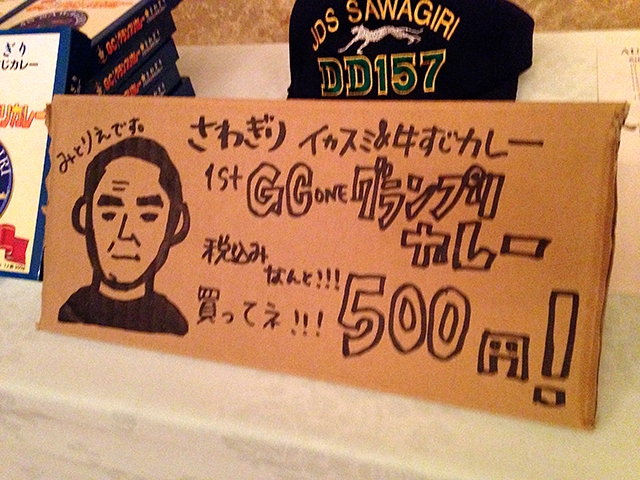 JDS SAWAGIRI
DD157
ぎり
すじカレー
みとりえです。
さわぎり イカスミ&牛すじカレー
1st GC ONE グランプリ
カレー
税込み
なんと!!!
買ってネ!!!
500円!